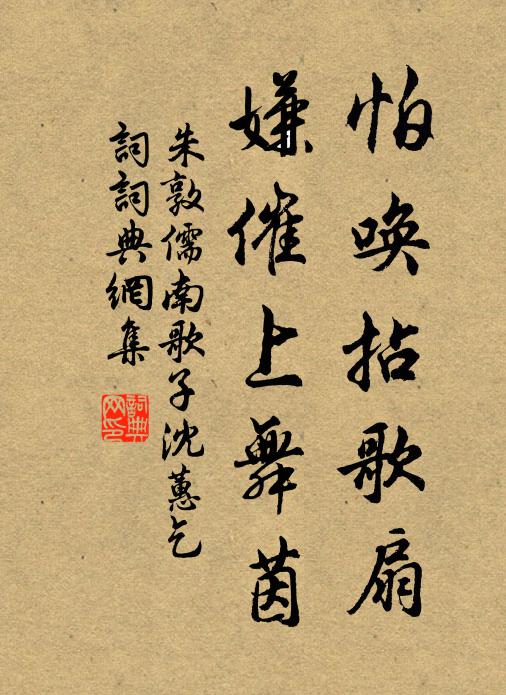 怕唤拈歌扇
嫌催上舞茵
朱敦儒南歌子沈蕙乞
詞詞典網集
詞典网印